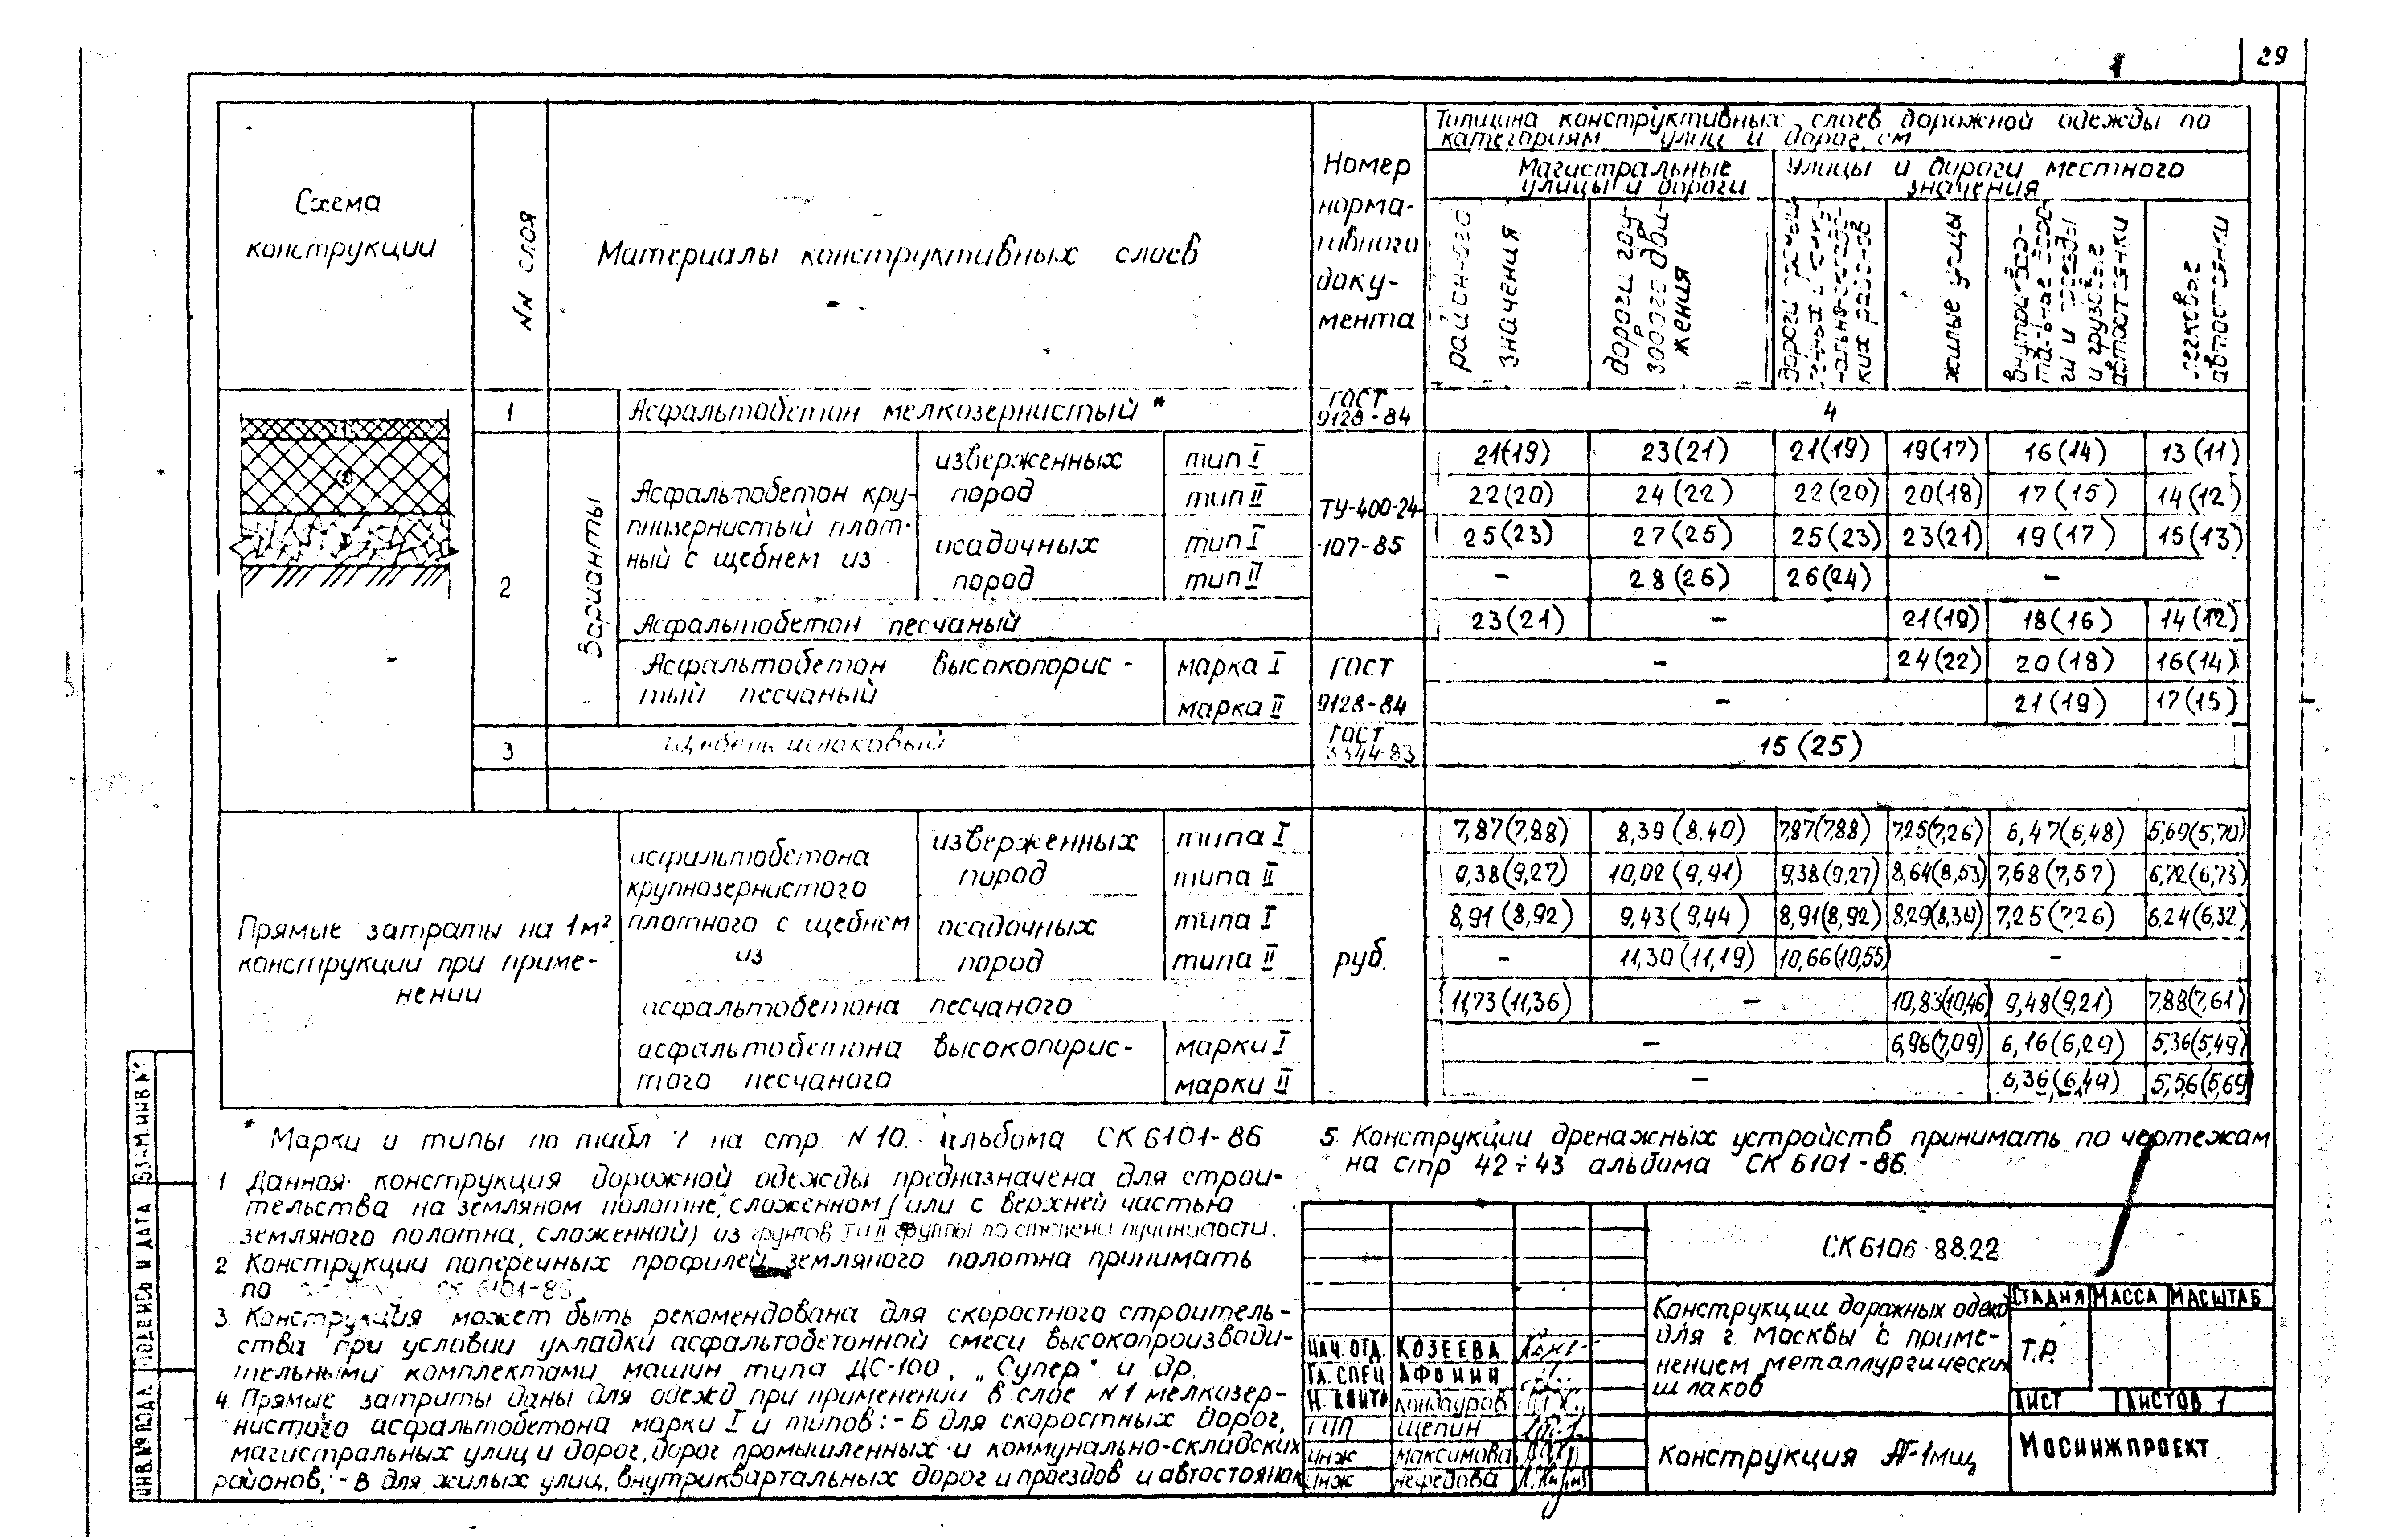 29
Схема
конструкции
NN слоя
Материалы конструктивных слоев
Номер
норма-
тивного
доку-
мента
Толщина конструктивных слоев дорожной одежды по
категориям улиц и дорог, см
Магистральные
улицы и дороги
Улицы и дороги местного
значения
район-ого
значения
дороги гру-
зового дви-
жения
жилые улицы
легковые
автостоянки
1 Асфальтобетон мелкозернистый * ГОСТ 9128-84 4
2
Варианты
Асфальтобетон кру-
пнозернистый плот-
ный с щебнем из
изверженных
пород
осадочных
пород
ТУ-400-24-
-107-85
тип I 21(19) 23(21) 21(19) 19(17) 16(14) 13(11)
тип II 22(20) 24(22) 22(20) 20(18) 17(15) 14(12)
тип I 25(23) 27(25) 25(23) 23(21) 19(17) 15(13)
тип II - 28(26) 26(24) -
Асфальтобетон песчаный 23(21) - 21(19) 18(16) 14(12)
Асфальтобетон высокопорис-
тый песчаный
ГОСТ
9128-84
марка I - 24(22) 20(18) 16(14)
марка II - 21(19) 17(15)
3 Щебень шлаковый ГОСТ 3344-83 15(25)
Прямые затраты на 1м²
конструкции при приме-
нении
асфальтобетона
крупнозернистого
плотного с щебнем
из
изверженных
пород
осадочных
пород
руб.
типа I 7,87(7,88) 8,39(8,40) 7,87(7,88) 7,25(7,26) 6,47(6,48) 5,69(5,70)
типа II 9,38(9,27) 10,02(9,91) 9,38(9,27) 8,64(8,53) 7,68(7,57) 6,72(6,73)
типа I 8,91(8,92) 9,43(9,44) 8,91(8,92) 8,29(8,30) 7,25(7,26) 6,24(6,32)
типа II - 11,30(11,19) 10,66(10,55) -
асфальтобетона песчаного 11,73(11,36) - 10,83(10,46) 9,48(9,21) 7,88(7,61)
асфальтобетона высокопорис-
того песчаного
марки I - 6,96(7,09) 6,16(6,29) 5,36(5,49)
марки II - 6,36(6,49) 5,56(5,69)
* Марки и типы по табл 7 на стр. N 10. альбома СК 6101-86
1 Данная конструкция дорожной одежды предназначена для строи-
тельства на земляном полотне, сложенном (или с верхней частью
земляного полотна, сложенной) из грунтов I и II группы по степени пучинистости.
2 Конструкции поперечных профилей земляного полотна принимать
по СК 6101-86
3. Конструкция может быть рекомендована для скоростного строитель-
ства при условии укладки асфальтобетонной смеси высокопроизводи-
тельными комплектами машин типа ДС-100, „Супер" и др.
4 Прямые затраты даны для одежд при применении в слое N 1 мелкозер-
нистого асфальтобетона марки I и типов: - Б для скоростных дорог,
магистральных улиц и дорог, дорог промышленных и коммунально-складских
районов; - В для жилых улиц, внутриквартальных дорог и проездов и автостоянок
5. Конструкции дренажных устройств принимать по чертежам
на стр 42÷43 альбома СК 6101-86.
СК 6106-88.22
Конструкции дорожных одежд
для г. Москвы с приме-
нением металлургических
шлаков
СТАДИЯ МАССА МАСШТАБ
Т.Р.
ЛИСТ ЛИСТОВ 1
Конструкция АГ-1мщ
МОСИНЖПРОЕКТ
НАЧ. ОТД. КОЗЕЕВА
ГЛ. СПЕЦ АФОНИН
Н. КОНТР Кондауров
ГИП Щепин
ИНЖ Максимова
ИНЖ Нефедова
ВЗАМ. ИНВ N°
ПОДПИСЬ И ДАТА
ИНВ. N° ПОДЛ.